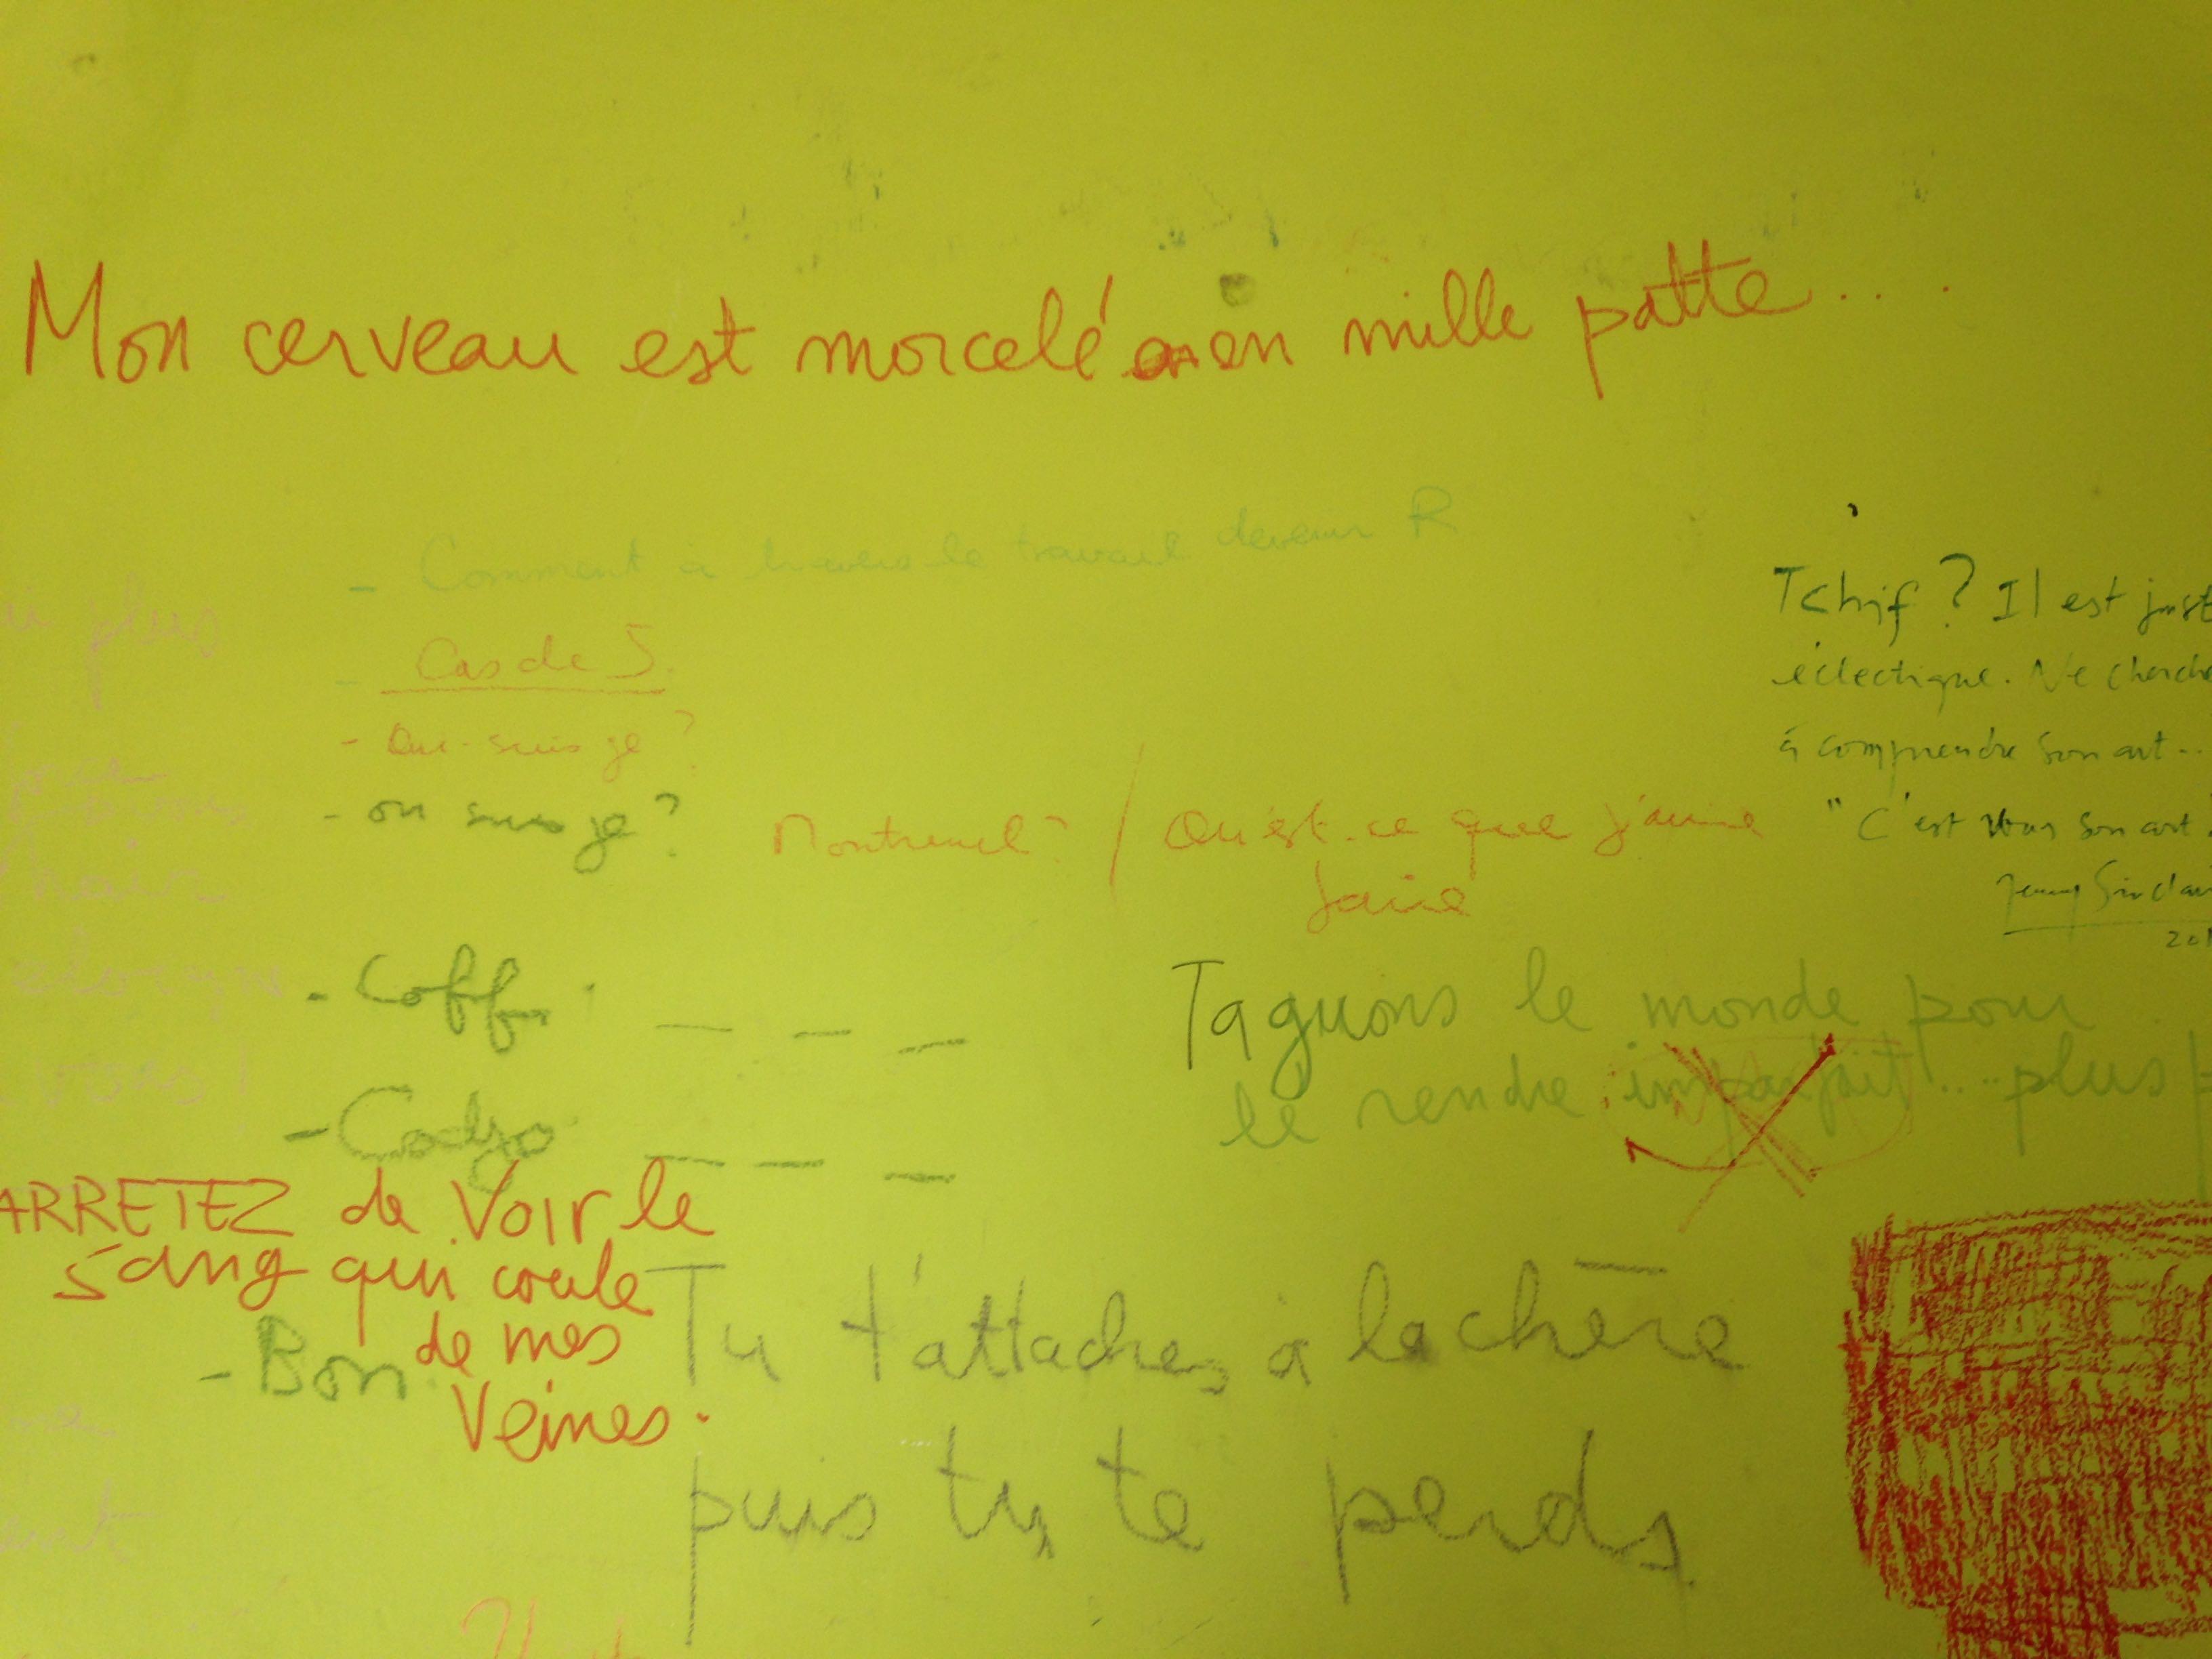 Mon cerveau est morcelé en mille patte...
- Comment à travers le travail devenir R
- Cas de J.
- Qui suis je ?
- ou suis je ? Montreuil ? / Qu'est-ce que j'aime
faire
Tchif ? Il est just
éclectique. Ne cherche
à comprendre son art...
"C'est son art
20
ii plus
- Coffi. _ _ _
- Codjo _ _ _
Taguons le monde pour
le rendre imparfait.... plus p
ARRETEZ de Voir le
sang qui coule
de mes
Veines.
- Bon.
Tu t'attaches à la chère
puis tu te perds